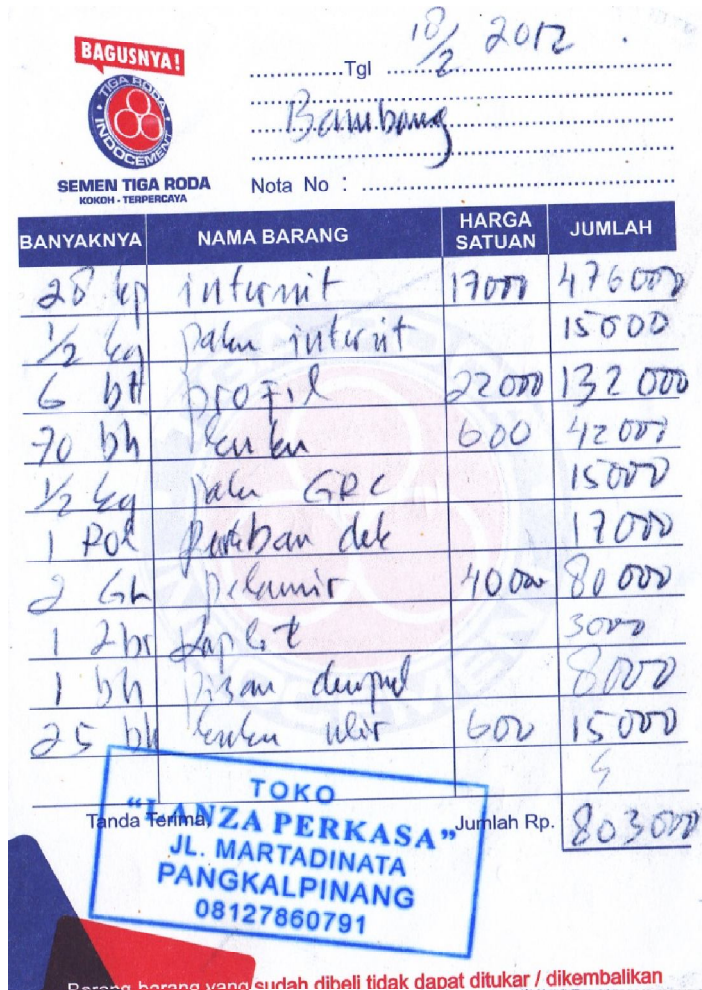 18/2 2012 .
BAGUSNYA!
TIGA RODA
INDOCEMENT
SEMEN TIGA RODA
KOKOH - TERPERCAYA
Tgl
Bambang
Nota No :
BANYAKNYA NAMA BARANG HARGA SATUAN JUMLAH
28 kp internit 17000 476000
1/2 kg paku internit 15000
6 bh profil 22000 132000
70 bh kuku 600 42000
1/2 kg paku GRC 15000
1 Pol perban dek 17000
2 GL pelamir 40000 80000
1 2br 3000
1 bh pisau dempul 8000
25 bh kuku ulir 600 15000
TOKO
Tanda Terima, Jumlah Rp. 803000
"LANZA PERKASA"
JL. MARTADINATA
PANGKALPINANG
08127860791
Barang-barang yang sudah dibeli tidak dapat ditukar / dikembalikan